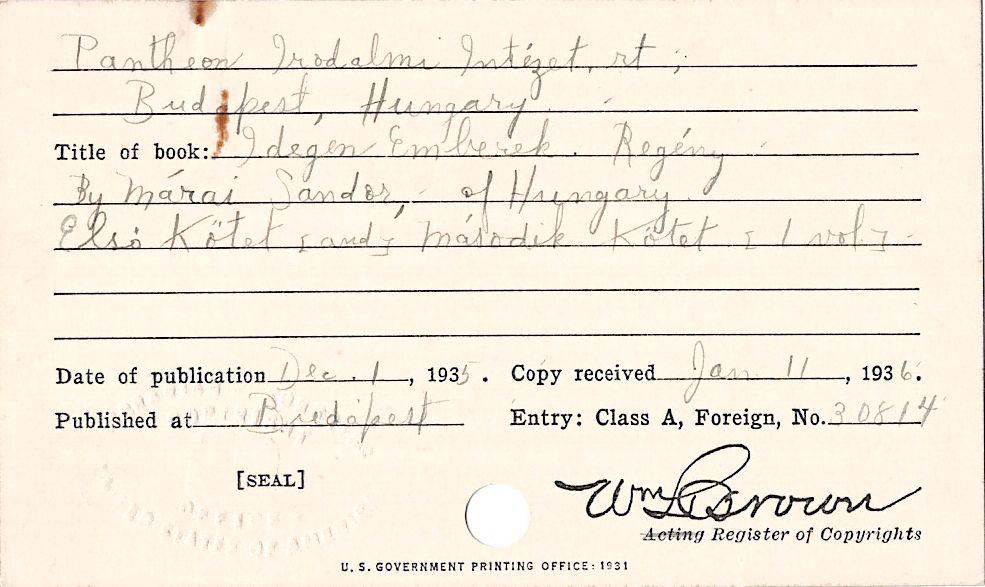 Pantheon Irodalmi Intézet, rt ;
Budapest, Hungary.
Title of book: Idegen Emberek. Regény
By Márai Sandor, of Hungary.
Első Kötet [and] Második Kötet [1 vol.]
Date of publication Dec. 1, 1935. Copy received Jan 11, 1936.
Published at Budapest Entry: Class A, Foreign, No. 30814
[SEAL]
Wm L Brown
Acting Register of Copyrights
U. S. GOVERNMENT PRINTING OFFICE: 1931